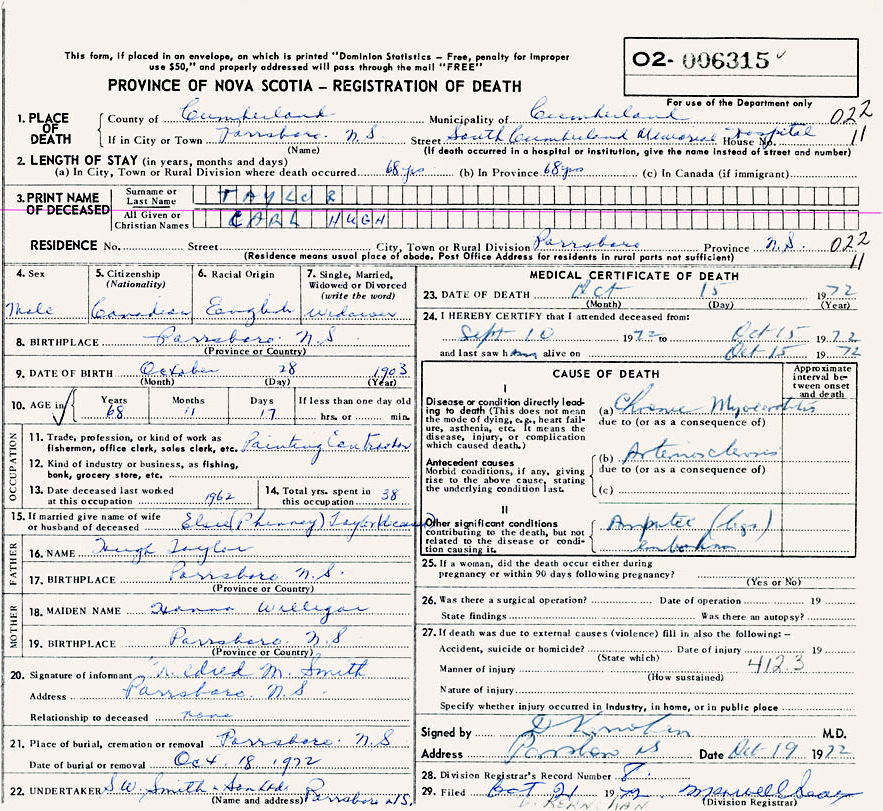 This form, if placed in an envelope, on which is printed "Dominion Statistics - Free, penalty for improper
use $50," and properly addressed will pass through the mail "FREE"
02-006315
PROVINCE OF NOVA SCOTIA - REGISTRATION OF DEATH
For use of the Department only
1. PLACE OF DEATH
County of Cumberland Municipality of Cumberland 022
If in City or Town Parrsboro. N.S Street South Cumberland Memorial Hospital House No. 11
(Name) (If death occurred in a hospital or institution, give the name instead of street and number)
2. LENGTH OF STAY (in years, months and days)
(a) In City, Town or Rural Division where death occurred 68 yrs (b) In Province 68 yrs (c) In Canada (if immigrant)
3. PRINT NAME OF DECEASED
Surname or Last Name TAYLOR
All Given or Christian Names CARL HUGH
RESIDENCE No. Street City, Town or Rural Division Parrsboro Province N.S 022
(Residence means usual place of abode. Post Office Address for residents in rural parts not sufficient) 11
4. Sex Male
5. Citizenship (Nationality) Canadian
6. Racial Origin English
7. Single, Married, Widowed or Divorced (write the word) Widower
8. BIRTHPLACE Parrsboro N.S
(Province or Country)
9. DATE OF BIRTH October 28 1903
(Month) (Day) (Year)
10. AGE in Years 68 Months 11 Days 17 If less than one day old
hrs. or min.
OCCUPATION
11. Trade, profession, or kind of work as
fisherman, office clerk, sales clerk, etc. Painting Contractor
12. Kind of industry or business, as fishing,
bank, grocery store, etc.
13. Date deceased last worked
at this occupation 1962
14. Total yrs. spent in
this occupation 38
15. If married give name of wife
or husband of deceased (Phinney) Taylor
FATHER
16. NAME Hugh Taylor
17. BIRTHPLACE Parrsboro N.S.
(Province or Country)
MOTHER
18. MAIDEN NAME
19. BIRTHPLACE Parrsboro. N.S
(Province or Country)
20. Signature of informant Mildred M. Smith
Address Parrsboro N.S.
Relationship to deceased none
21. Place of burial, cremation or removal Parrsboro. N.S
Date of burial or removal Oct. 18 1972
22. UNDERTAKER S.W. Smith Parrsboro N.S.
(Name and address)
MEDICAL CERTIFICATE OF DEATH
23. DATE OF DEATH Oct 15 1972
(Month) (Day) (Year)
24. I HEREBY CERTIFY that I attended deceased from:
Sept 10 1972 to Oct 15 1972
and last saw him alive on Oct 15 1972
CAUSE OF DEATH
Approximate interval between onset and death
I
Disease or condition directly leading
to death (This does not mean
the mode of dying, e.g., heart failure,
asthenia, etc. It means the
disease, injury, or complication
which caused death.)
(a) Chronic Myocarditis
due to (or as a consequence of)
Antecedent causes
Morbid conditions, if any, giving
rise to the above cause, stating
the underlying condition last.
(b) Arteriosclerosis
due to (or as a consequence of)
(c)
II
Other significant conditions
contributing to the death, but not
related to the disease or condition
causing it.
Amputee (legs)
embolism
25. If a woman, did the death occur either during
pregnancy or within 90 days following pregnancy?
(Yes or No)
26. Was there a surgical operation? Date of operation 19
State findings Was there an autopsy?
27. If death was due to external causes (violence) fill in also the following: -
Accident, suicide or homicide? Date of injury 19
(State which)
Manner of injury 412.3
(How sustained)
Nature of injury
Specify whether injury occurred in industry, in home, or in public place
Signed by M.D.
Address Parrsboro NS Date Oct 19 1972
28. Division Registrar's Record Number 8
29. Filed Oct 21 1972
(Division Registrar)